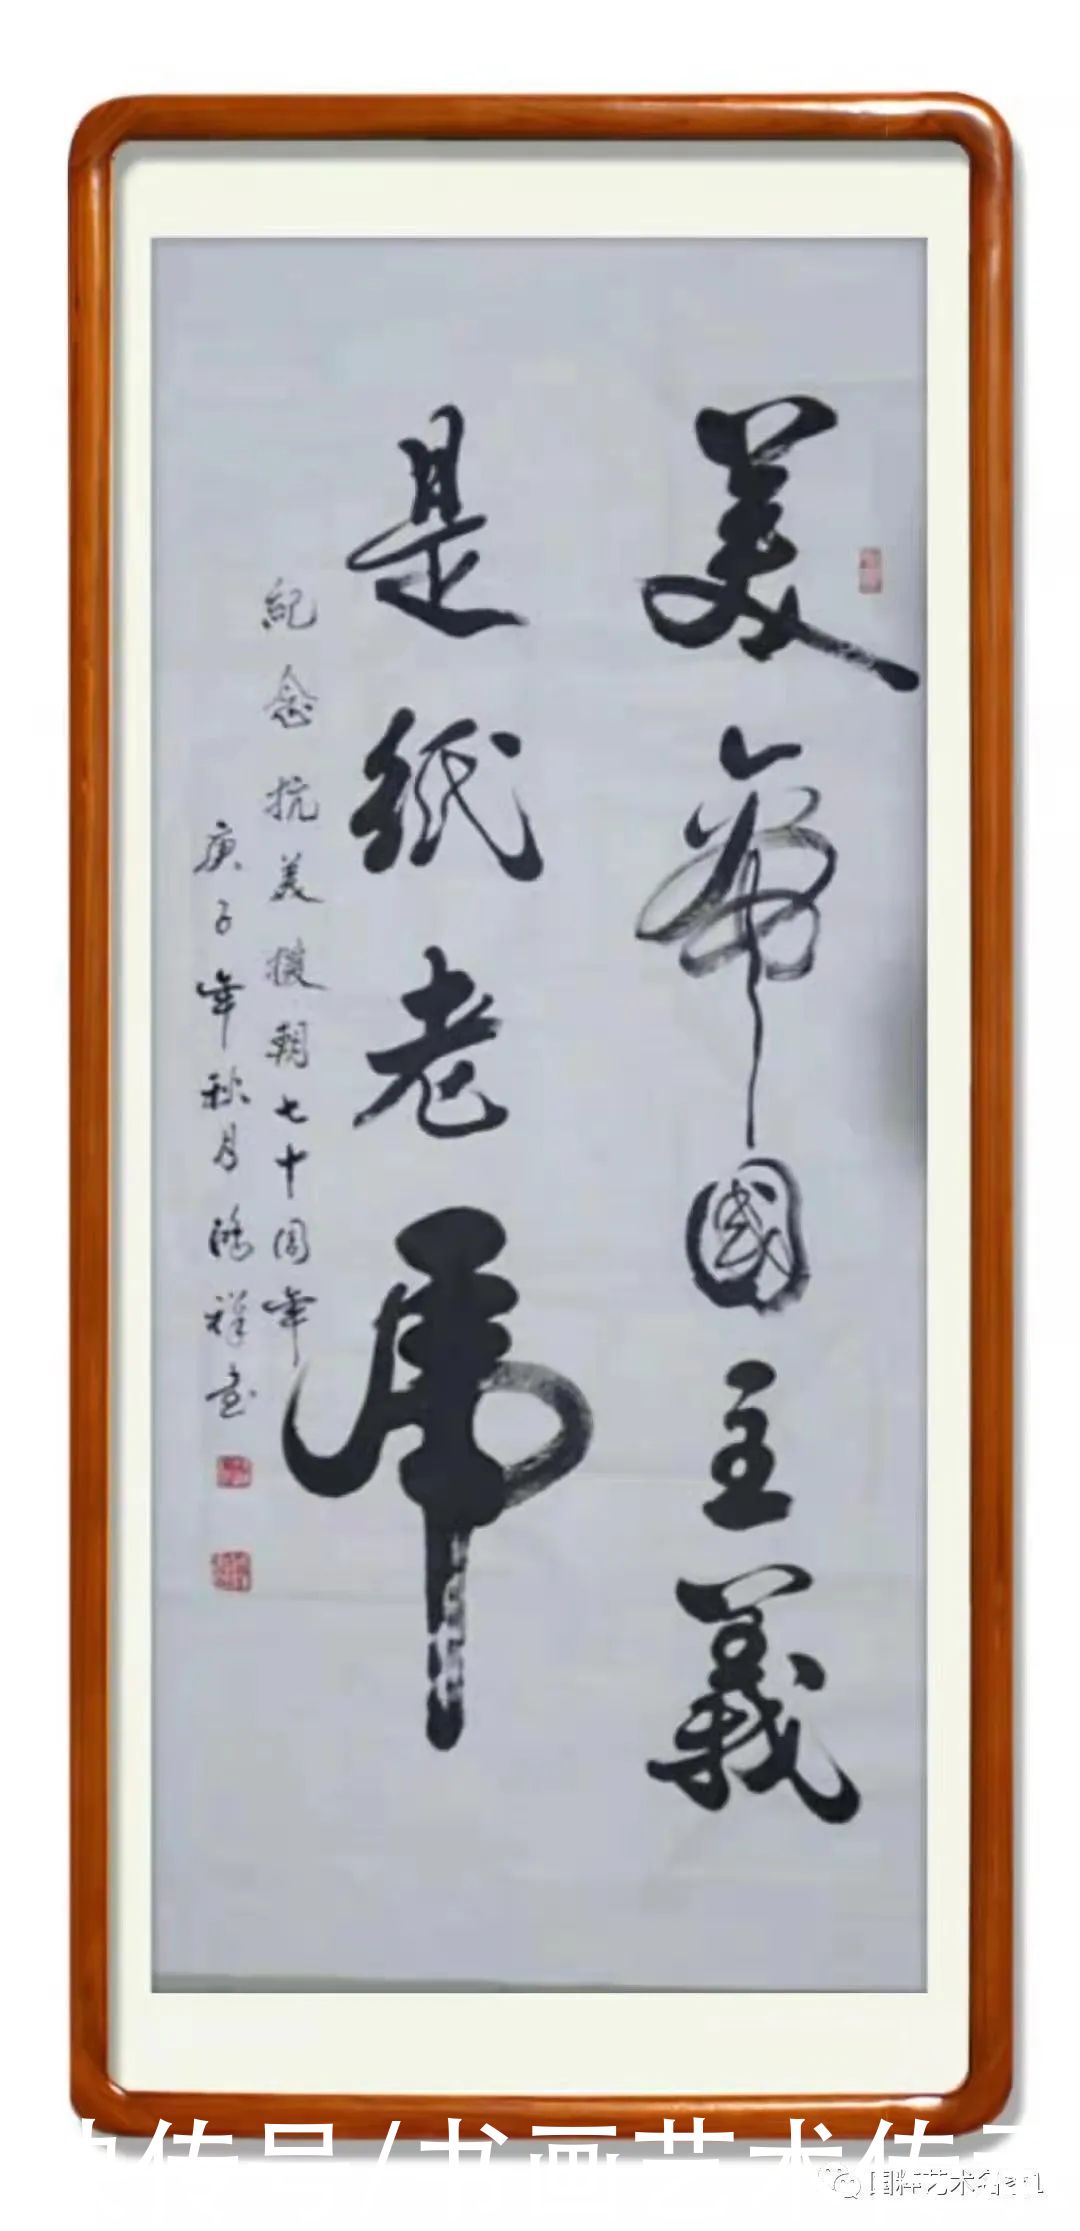 美帝國主義
是紙老虎
紀念抗美援朝七十周年
庚子年秋月鴻祥書
传号/书画艺术传
国粹艺术